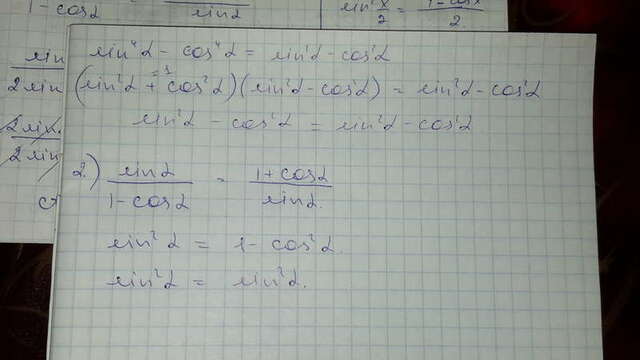 1 - cosα sinα
sin² x/2 = 1 - cosx / 2
sin
2 sin
2 sin
2 sin
sin⁴α - cos⁴α = sin²α - cos²α
=1
(sin²α + cos²α)(sin²α - cos²α) = sin²α - cos²α
sin²α - cos²α = sin²α - cos²α
2.) sinα / 1 - cosα = 1 + cosα / sinα.
sin²α = 1 - cos²α.
sin²α = sin²α.